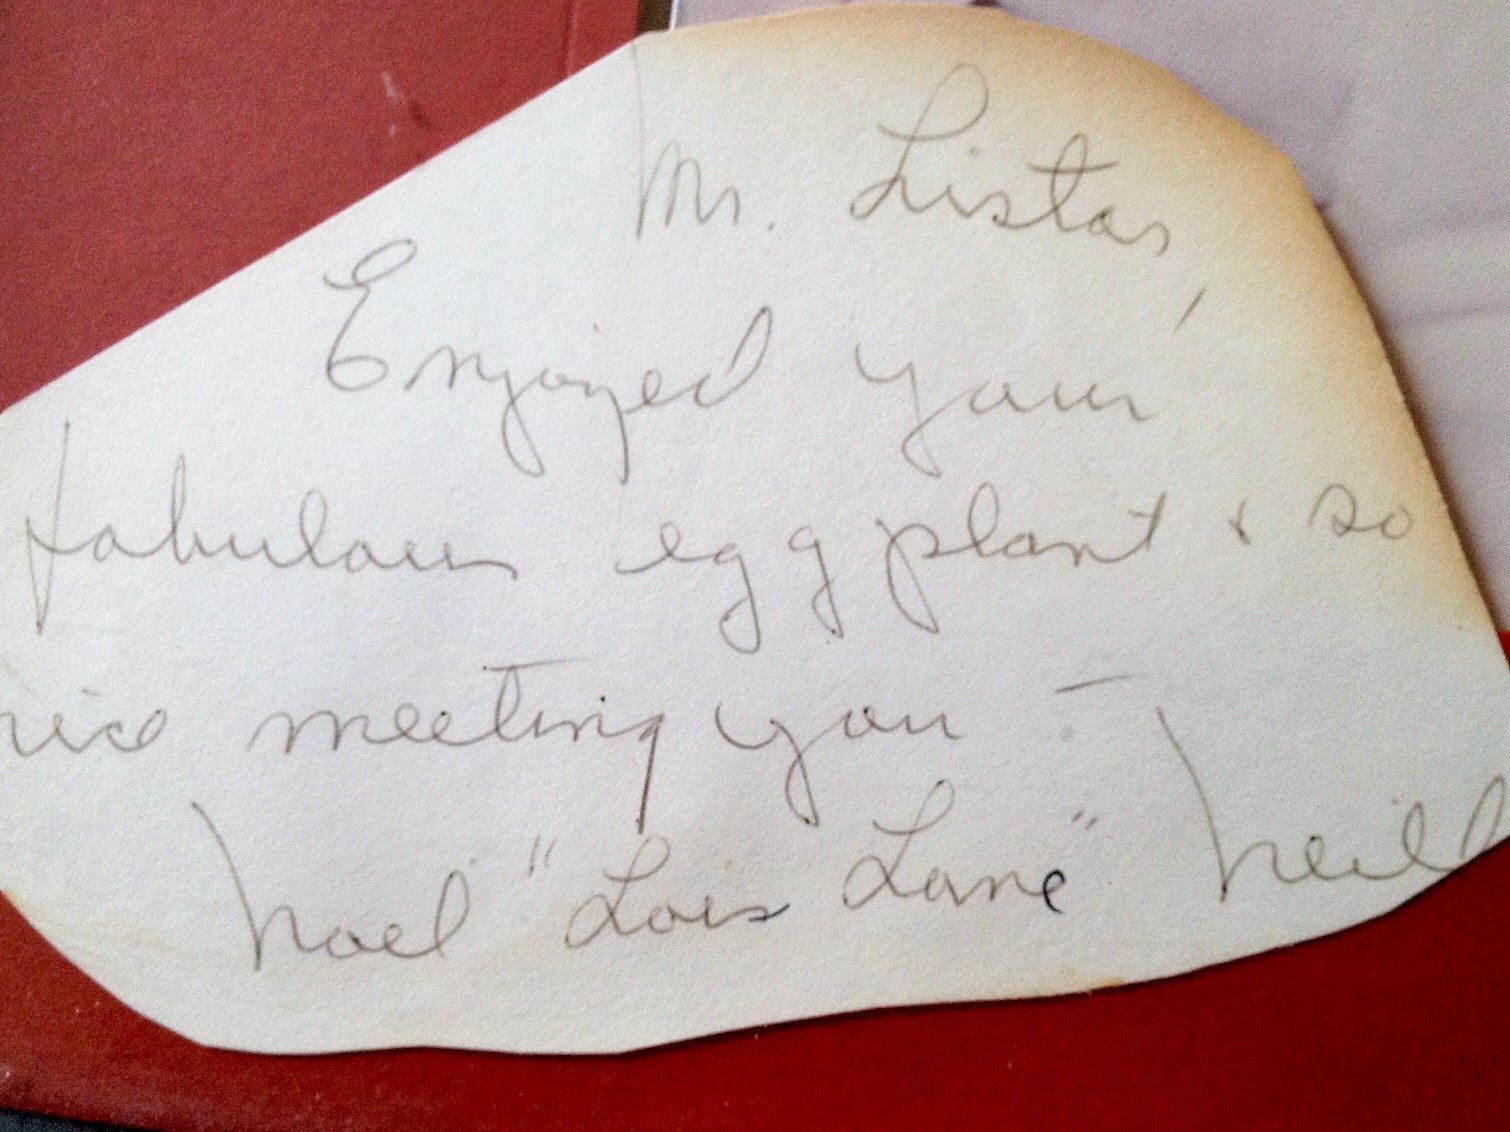 Mr. Listar,
Enjoyed your
fabulous egg plant & so
nice meeting you –
Noel "Lois Lane" Neill